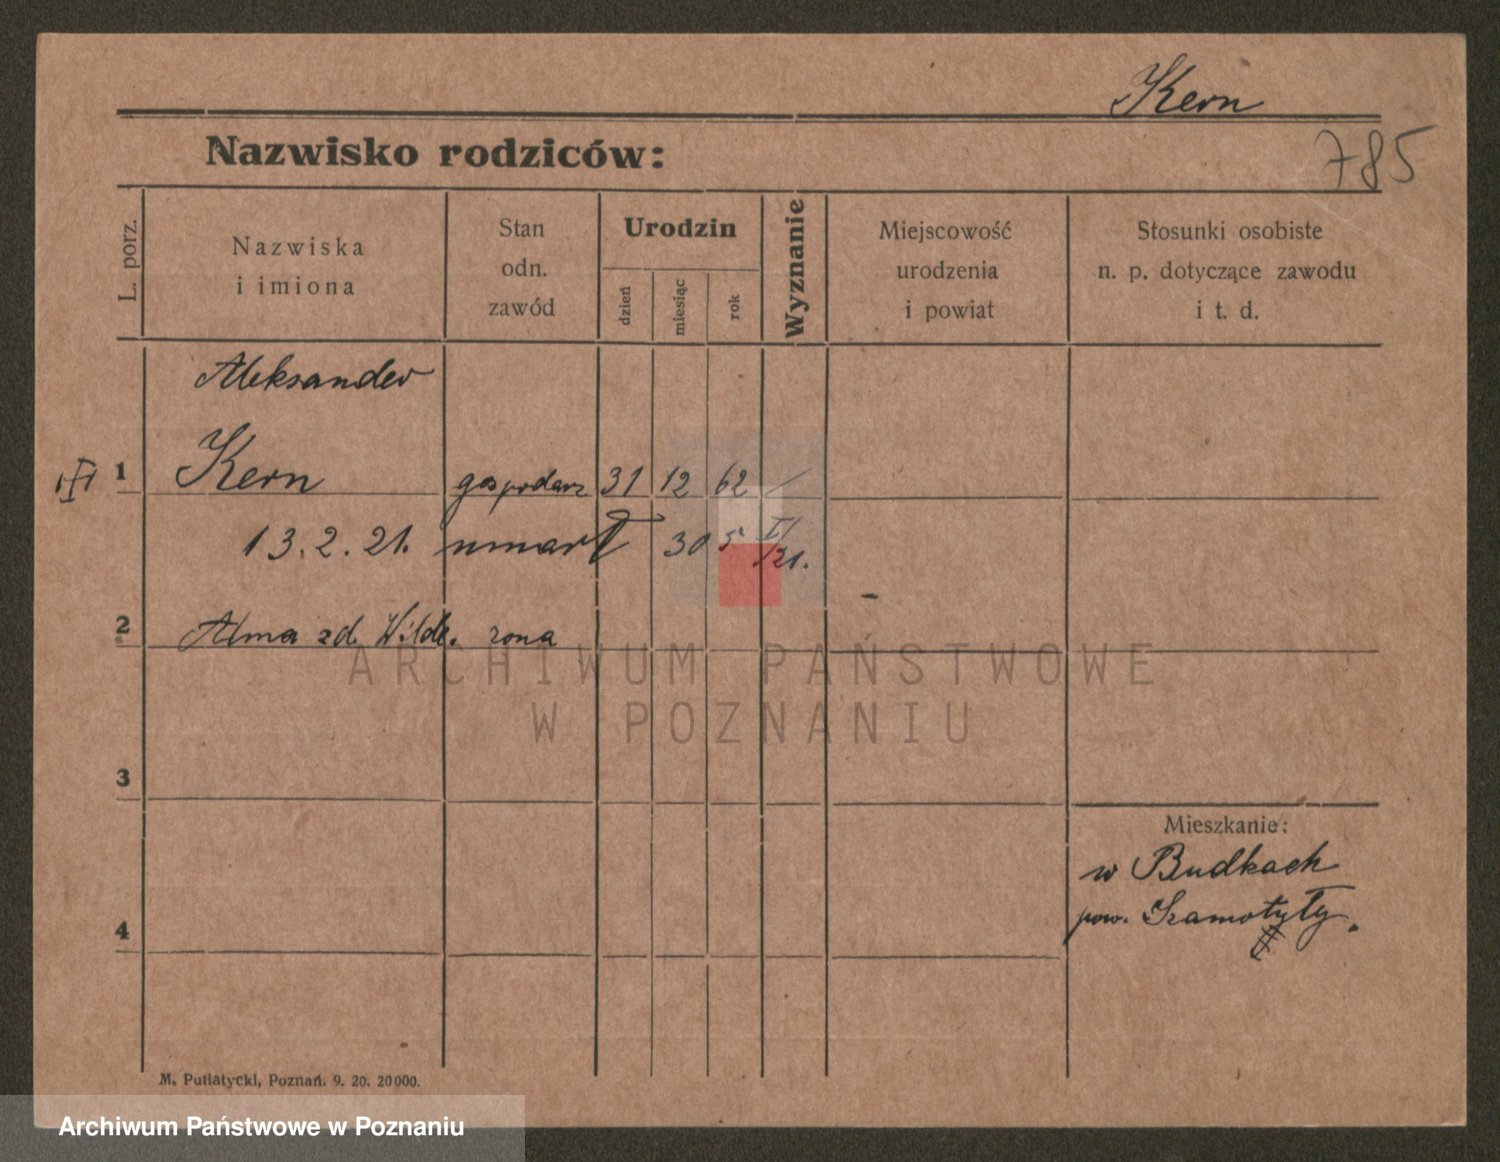 Kern
785
Nazwisko rodziców:
L. porz.
Nazwiska
i imiona
Stan
odn.
zawód
Urodzin
dzień
miesiąc
rok
Wyznanie
Miejscowość
urodzenia
i powiat
Stosunki osobiste
n. p. dotyczące zawodu
i t. d.
Aleksander
1 Kern gospodarz 31 12 62
13. 2. 21. umarł 30 5 I/21.
2 Alma zd. Wilde. żona
ARCHIWUM PAŃSTWOWE
W POZNANIU
3
Mieszkanie:
w Budkach
pow. Szamotyły.
4
M. Putiatycki, Poznań. 9. 20. 20000.
Archiwum Państwowe w Poznaniu